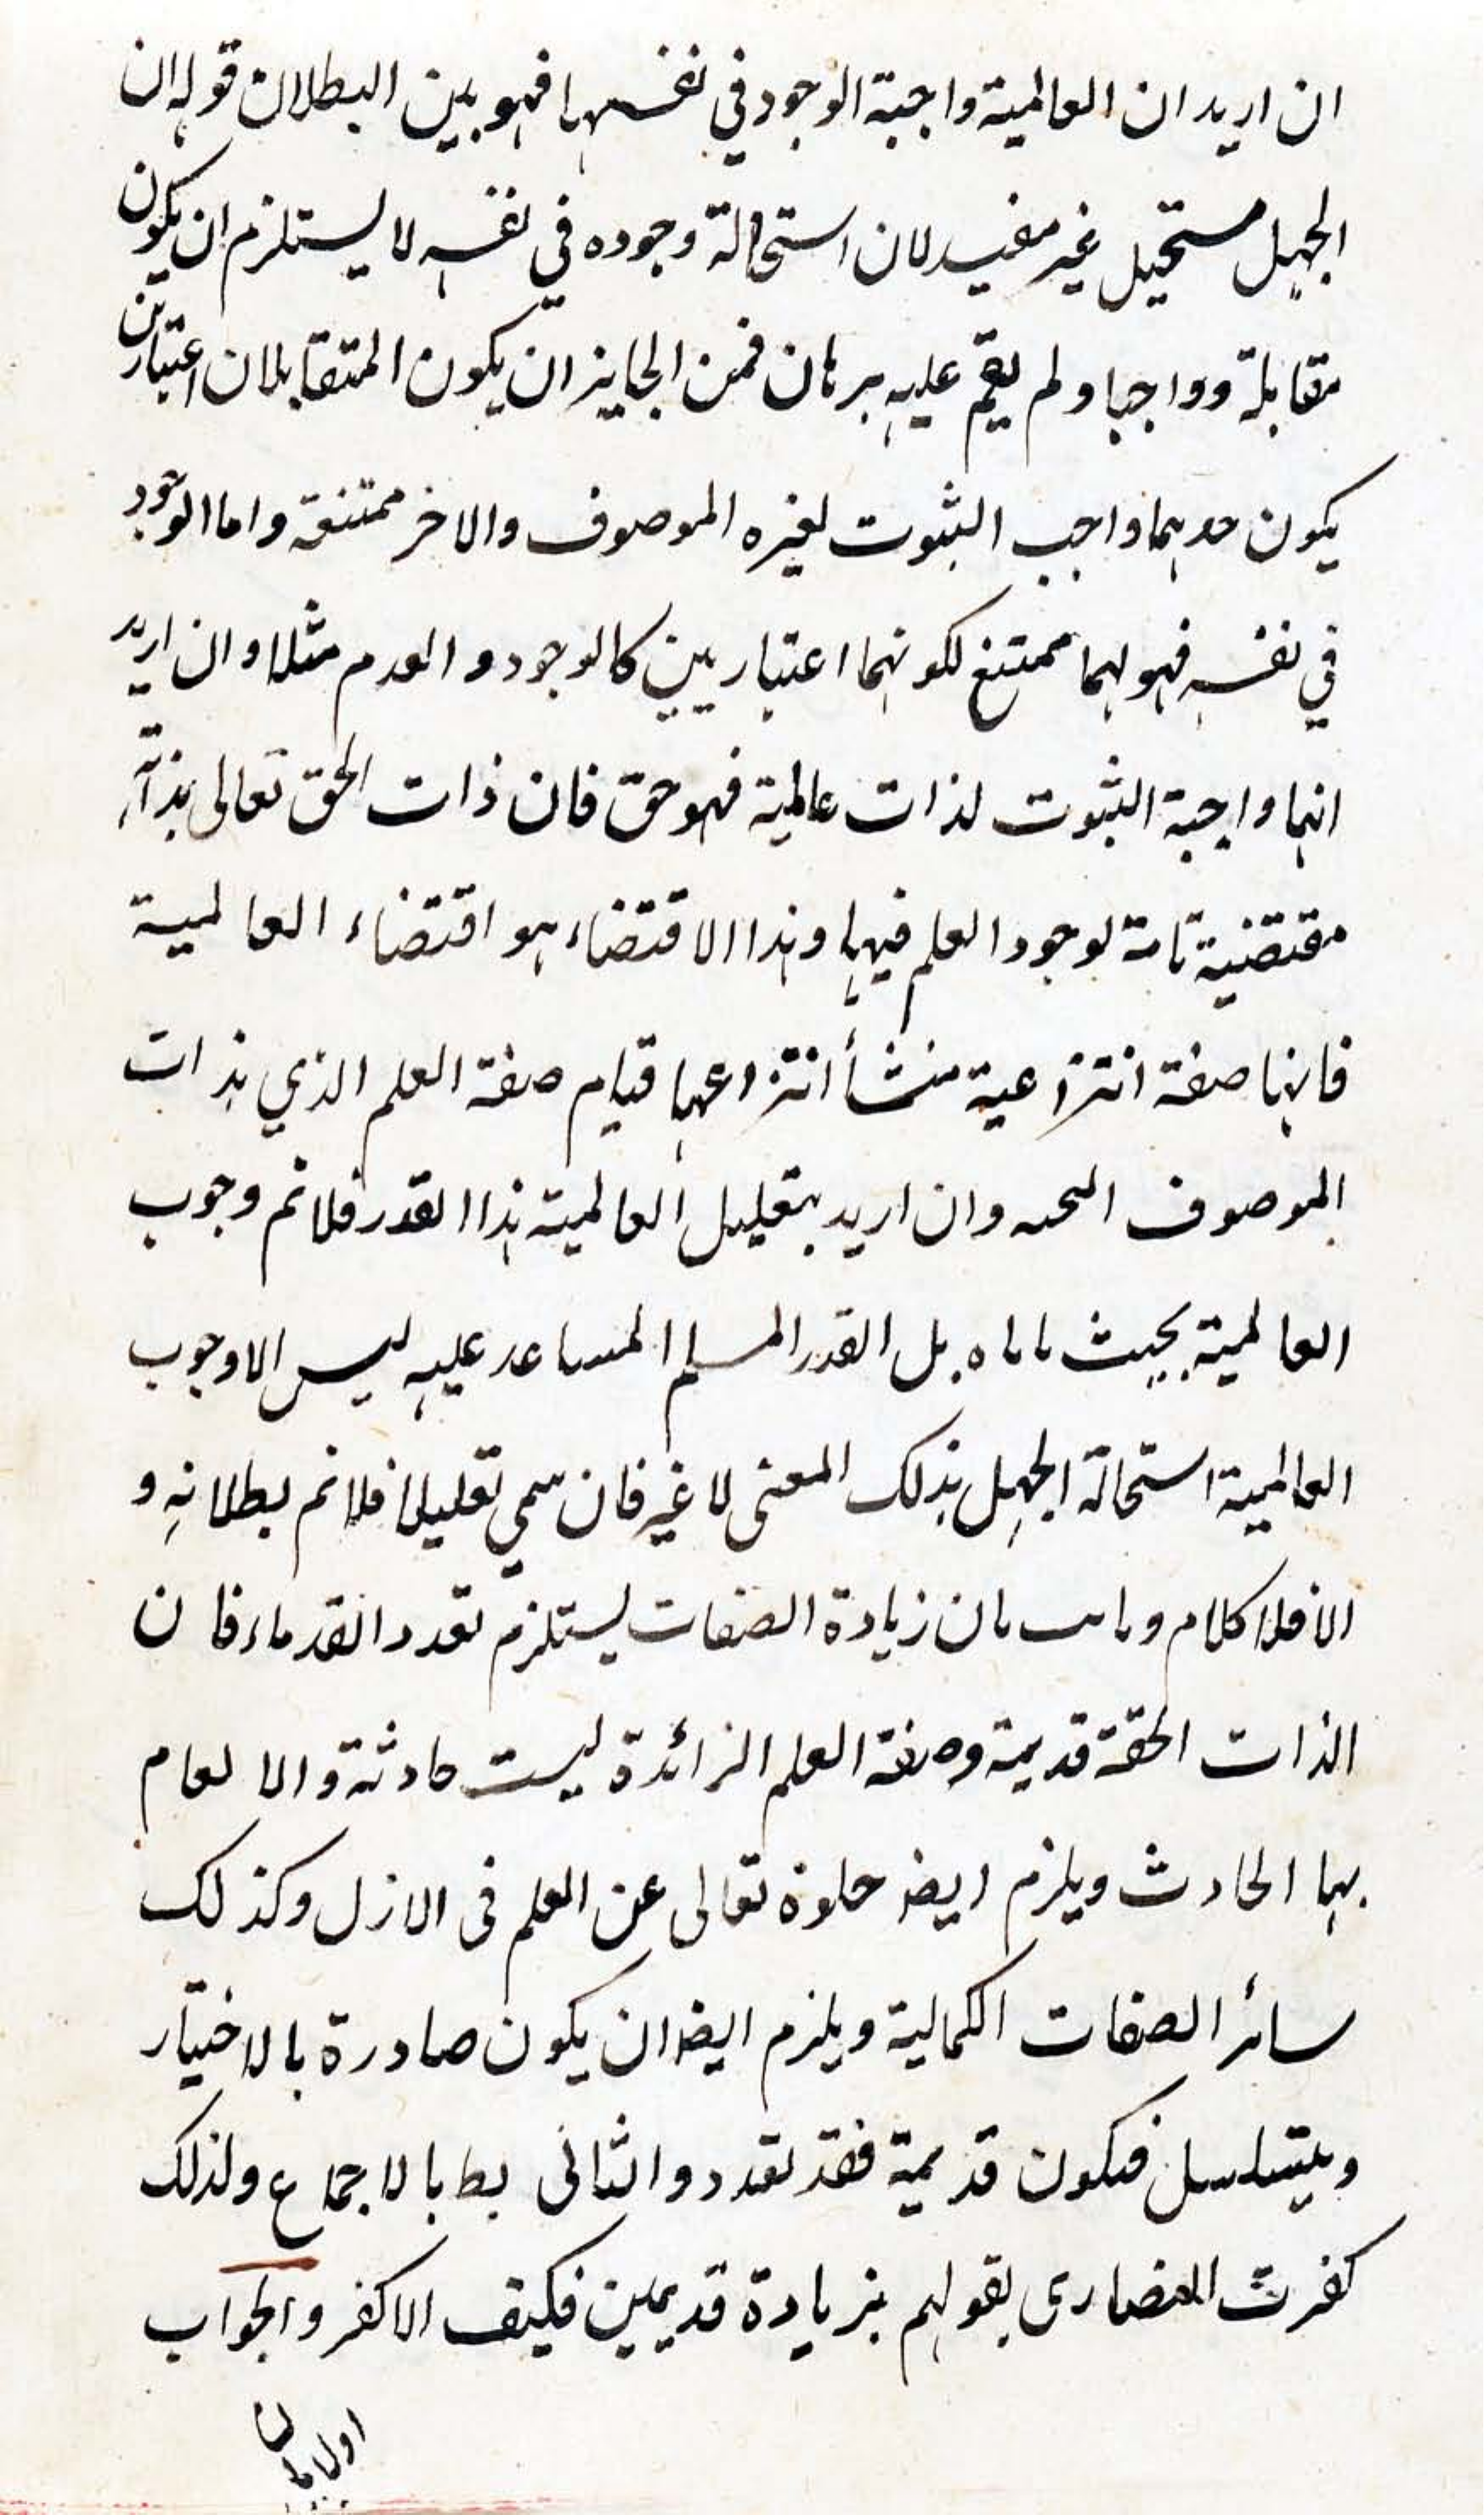 ان اريد ان العالمية واجبة الوجود في نفسها فهو بين البطلان قوله ان
الجهل مستحيل غير مفيد لان استحالة وجوده في نفسه لا يستلزم ان يكون
مقابلة وواجبا ولم يقم عليه برهان فمن الجايز ان يكون المتقابلان اعتباريين
يكون حدهما واجب الثبوت لغيره الموصوف والاخر ممتنعة واما الوجود
في نفسه فهو لهما ممتنع لكونهما اعتباريين كالوجود والعدم مثلا وان اريد
انها واجبة الثبوت لذات عالمية فهو حق فان ذات الحق تعالى بذاته
مقتضية تامة لوجود العلم فيها وهذا الاقتضاء هو اقتضاء العالمية
فانها صفة انتزاعية منشأ انتزاعها قيام صفة العلم الذي بذات
الموصوف وان اريد بتعليل العالمية هذا القدر فلا نم وجوب
العالمية بحيث بل القدر المسلم المساعد عليه ليس الا وجوب
العالمية استحالة الجهل بذلك المعنى لا غير فان سمي تعليلا فلا نم بطلانه و
الا فلا كلام و بان زيادة الصفات يستلزم تعدد القدماء فان
الذات الحقة قديمة وصفة العلم الزائدة ليست حادثة والا لقام
بها الحادث ويلزم ايضه خلوه تعالى عن العلم فى الازل وكذلك
سائر الصفات الكمالية ويلزم ايضه ان يكون صادرة بالاختيار
ويتسلسل فيكون قديمة فقد تعدد والثانى بط بالاجماع ولذلك
كفرت النصارى بقولهم بزيادة قديمين فكيف الاكفر والجواب
اولا بان